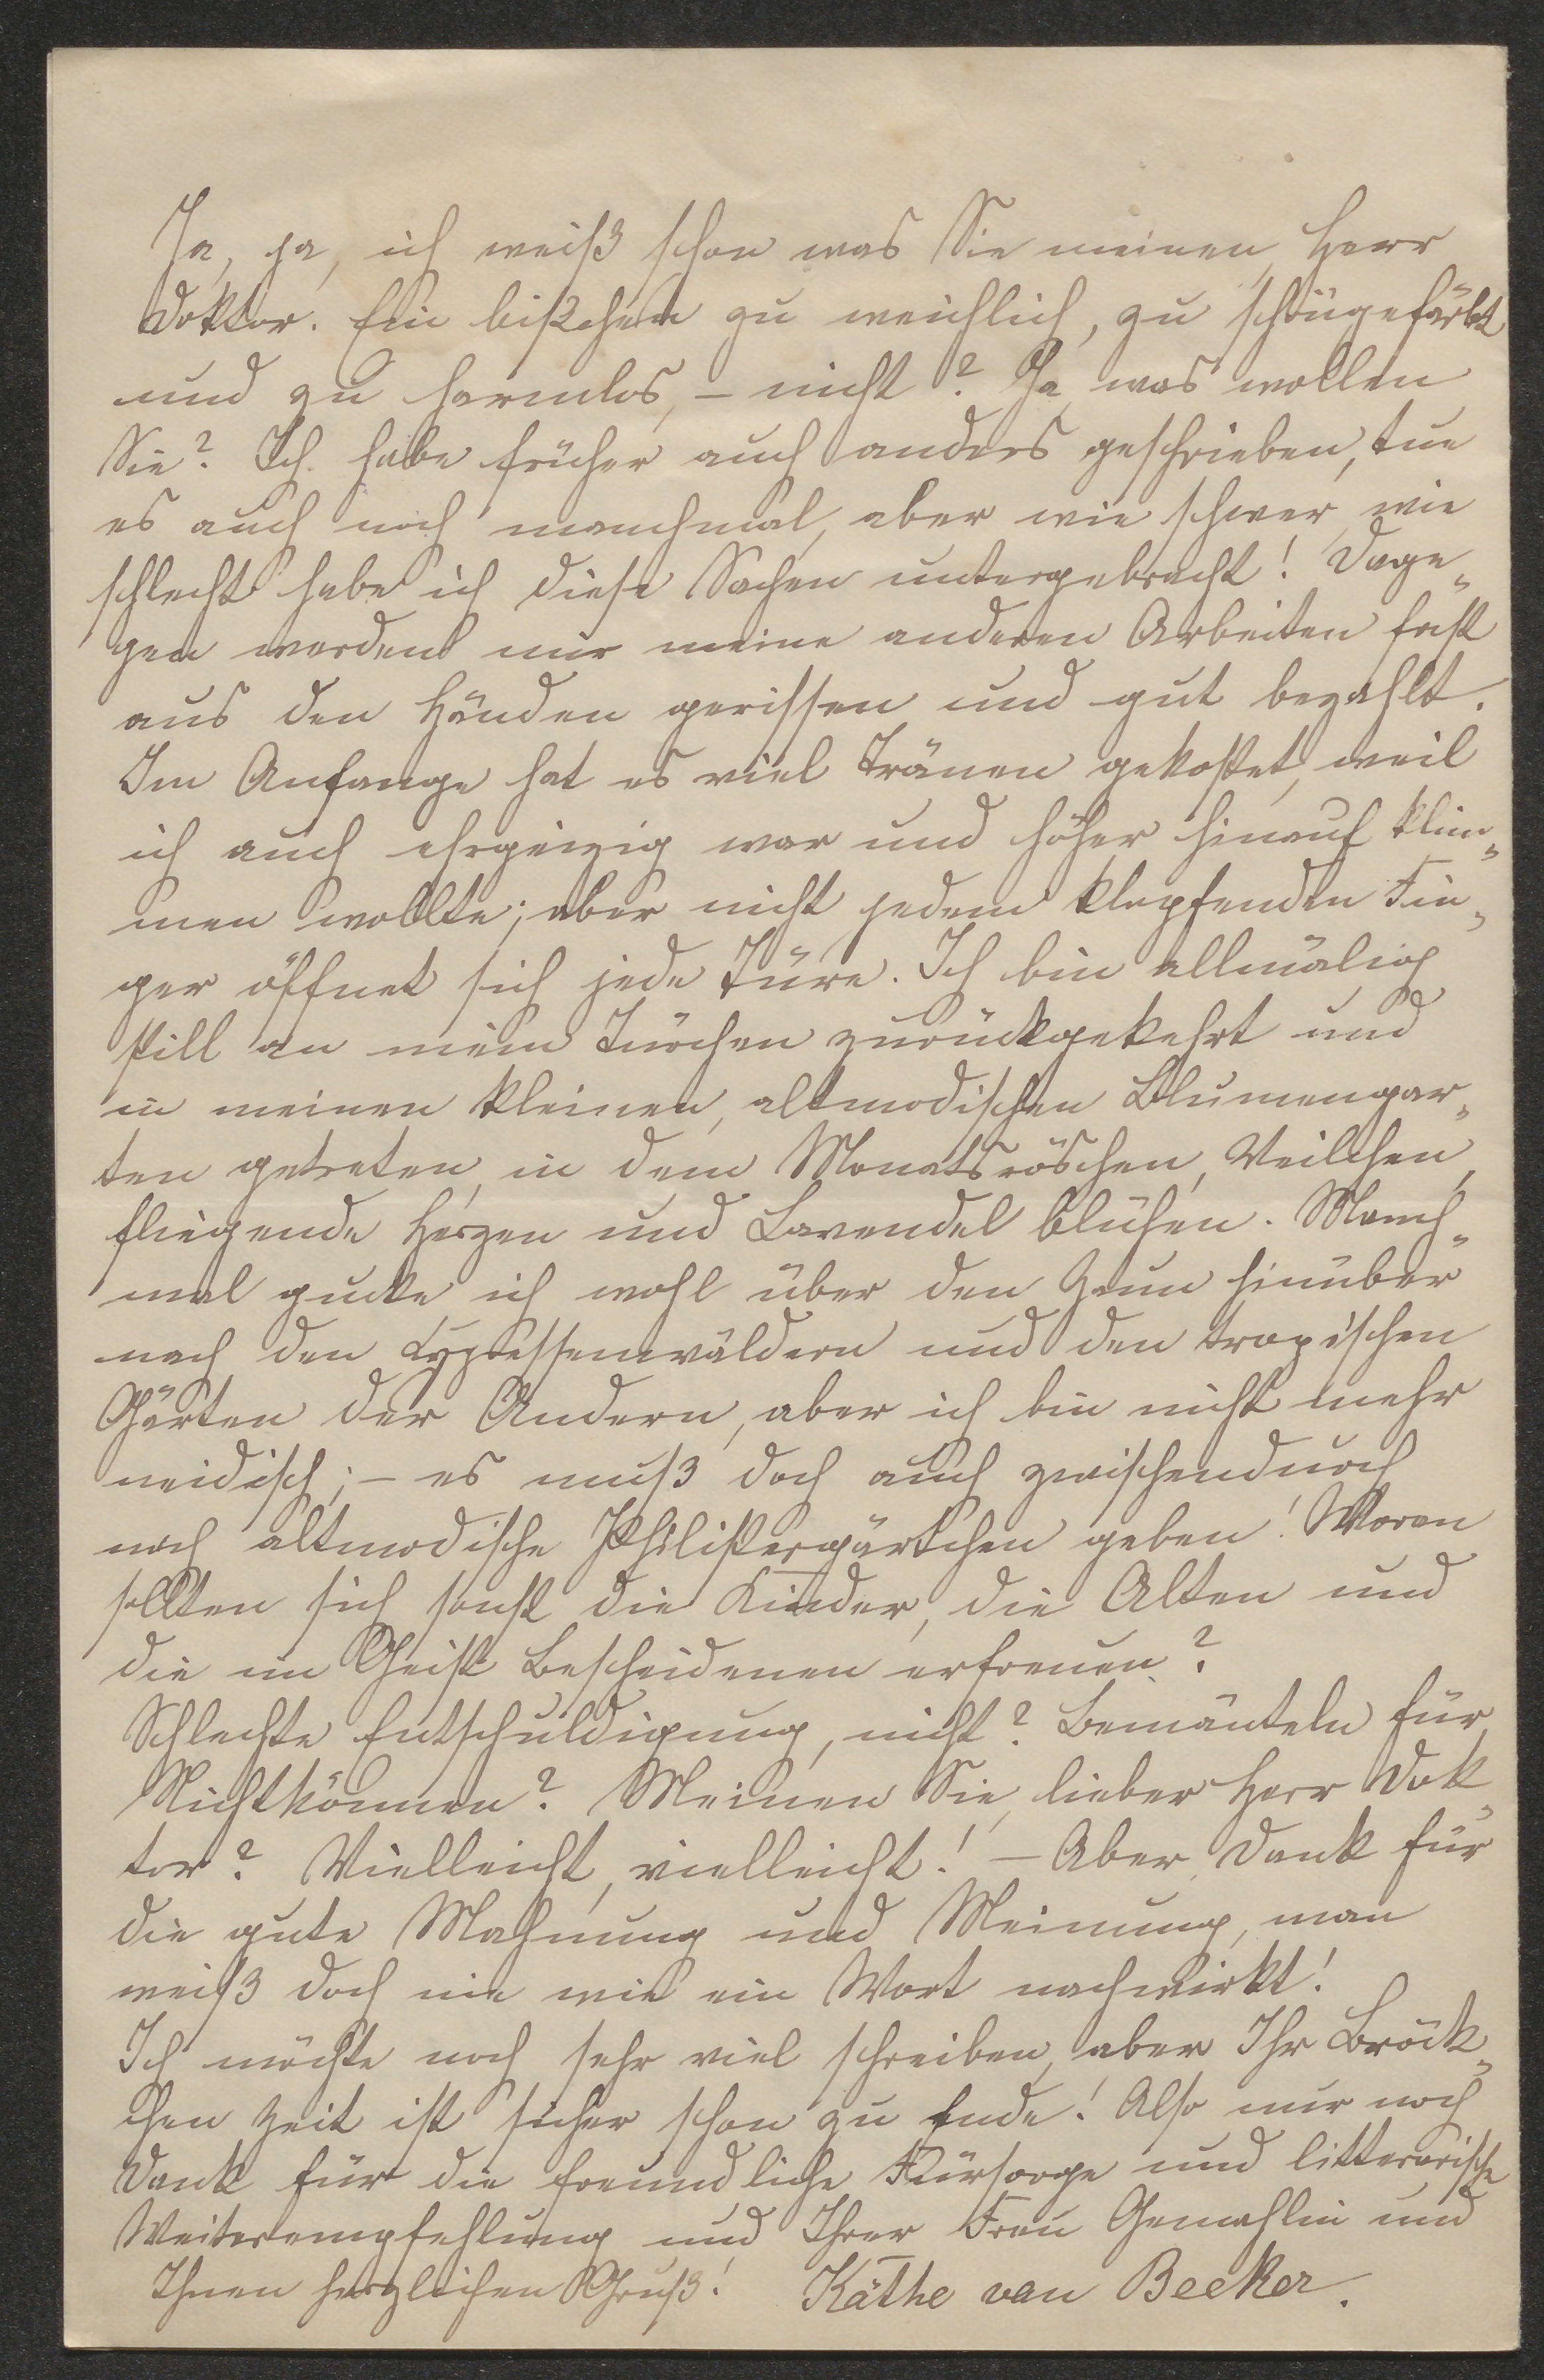 Ja, ja, ich weiß schon was Sie meinen, Herr
Doktor. Ein bißchen zu weichlich, zu schöngefärbt
und zu harmlos, – nicht? Ja, was wollen
Sie? Ich habe früher auch anders geschrieben, tue
es auch noch manchmal, aber wie schwer, wie
schlecht habe ich diese Sachen untergebracht! Dage„
gen werden mir meine anderen Arbeiten fast
aus den Händen gerissen und gut bezahlt.
Im Anfange hat es viel Tränen gekostet, weil
ich auch ehrgeizig war und höher hinauf klim„
men wollte; aber nicht jedem klopfenden Fin„
ger öffnet sich jede Türe. Ich bin allmälich
still an mein Türchen zurückgekehrt und
in meinen kleinen, altmodischen Blumengar„
ten getreten, in dem Monatsröschen, Veilchen,
fliegende Herzen und Lavendel blühen. Manch„
mal gucke ich wohl über den Zaun hinüber
nach den Cypressenwäldern und den tropischen
Gärten der Andern, aber ich bin nicht mehr
neidisch; – es muß doch auch zwischendurch
noch altmodische Philistergärtchen geben! Woran
sollten sich sonst die Kinder, die Alten und
die im Geist Bescheidenen erfreuen?
Schlechte Entschuldigung, nicht? Bemänteln für
Nichtkönnen? Meinen Sie, lieber Herr Dok„
tor? Vielleicht, vielleicht! – Aber Dank für
die gute Mahnung und Meinung, man
weiß doch nie wie ein Wort nachwirkt!
Ich möchte noch sehr viel schreiben, aber Ihr Bröck„
chen Zeit ist sicher schon zu Ende! Also nur noch
Dank für die freundliche Fürsorge und litterarische
Weiterempfehlung und Ihrer Frau Gemahlin und
Ihnen herzlichen Gruß! Käthe van Beeker.